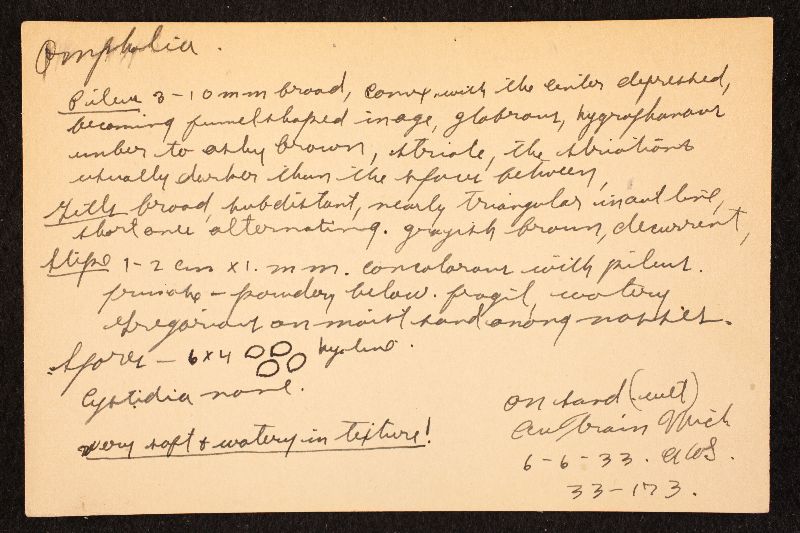 Omphalia.
Pileus 3-10 mm broad, convex with the center depressed,
becoming funnel shaped in age, glabrous, hygrophanous
umber to ashy brown, striate, the striations
usually darker than the space between,
Gills broad, subdistant, nearly triangular in outline,
short ones alternating. grayish brown, decurrent,
Stipe 1-2 cm x 1. mm. concolorous with pileus.
pruinose - powdery below. fragil, watery
gregarious on moist sand among mosses.
Spores - 6x4 hyaline.
Cystidia none.
very soft & watery in texture!
on sand (wet)
AuTrain Mich
6-6-33. AHS.
33-173.